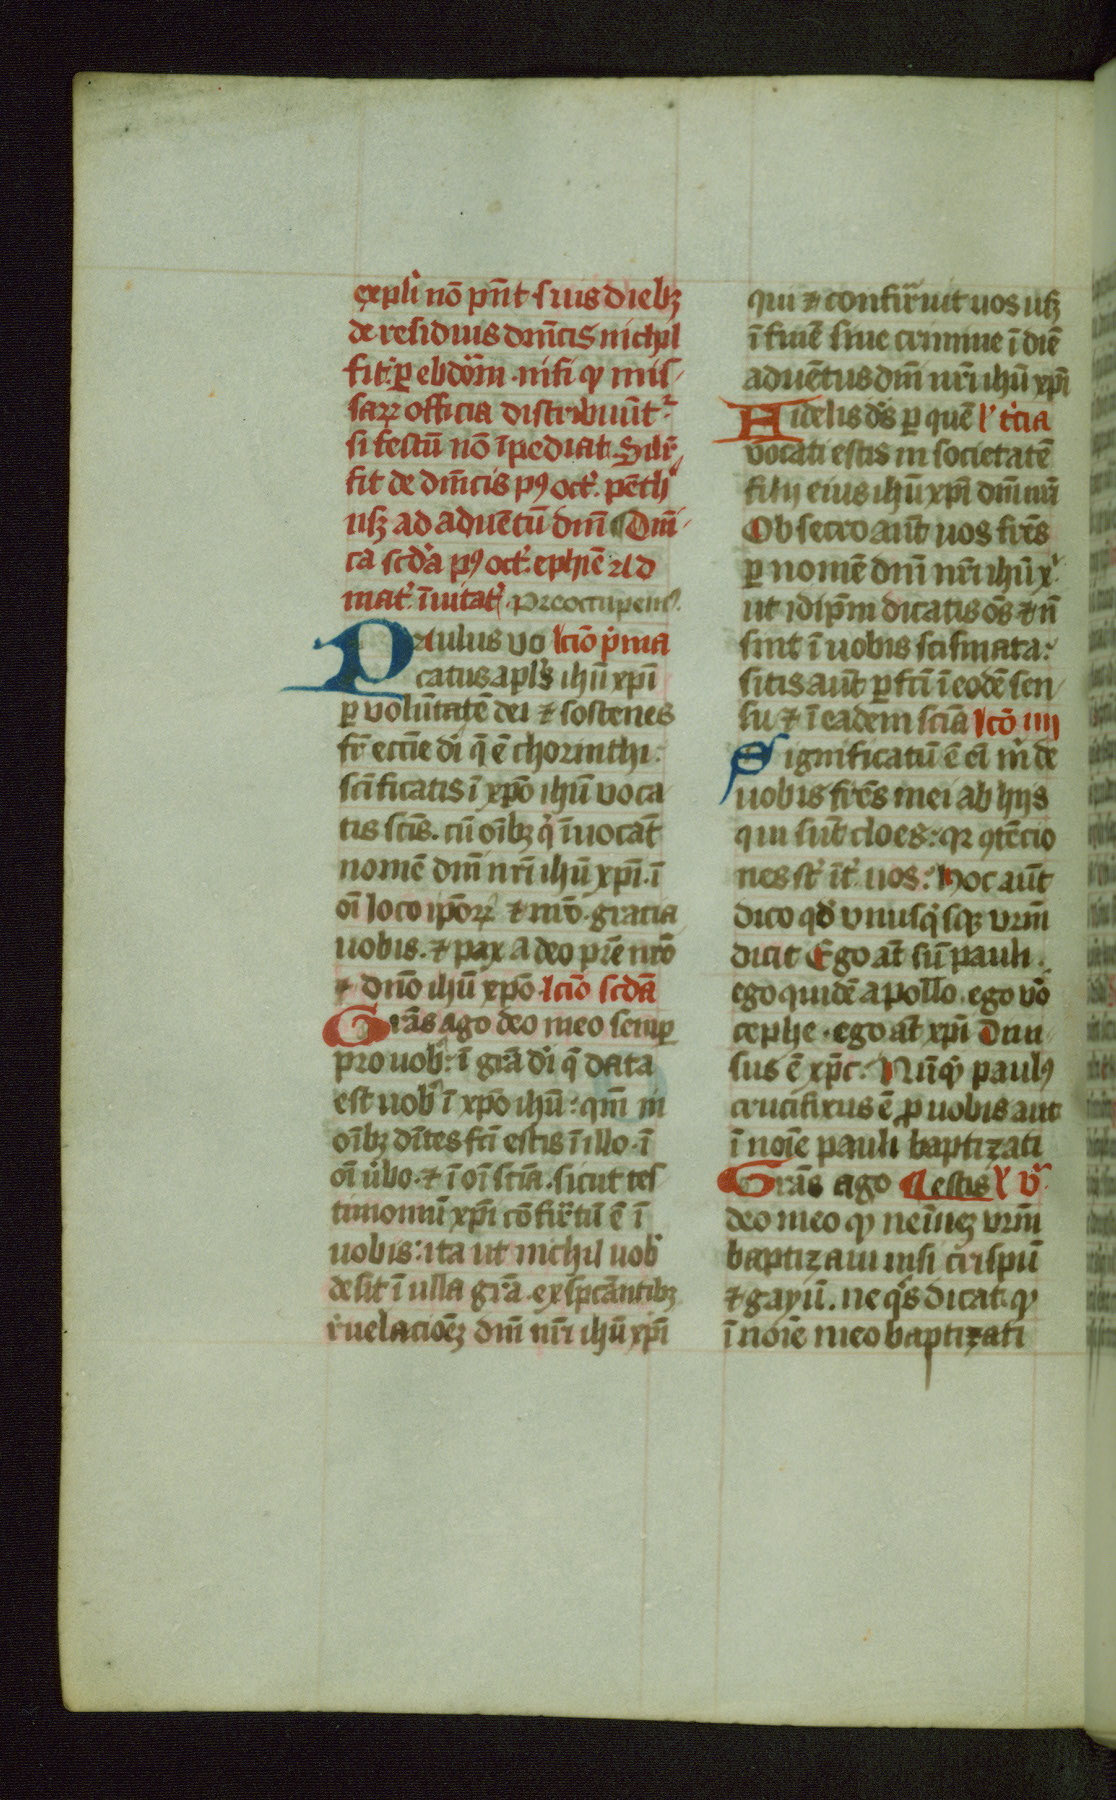 expli nō pn̄t suis diebꝫ
de residuis dm̄cis nichil
fit: ꝑ ebdōm̄. nisi ꝙ mis
saꝝ officia distribuūt
si festū nō īpediat. Silr̄
fit de dm̄cis pꝰ oct. pēth
usꝫ ad aduētū dm̄ Dm̄i
ca scda pꝰ oct. ephiē Ad
mat̉ īuitat̉ Preoccupem̉
Paulus vo lcio p̉ma
catus apls ihū xpī
ꝑ volūtatē dei ⁊ sostenes
fr̄ eccīe dī q̄ ē chorinthi:
scīficatis ī xp̄o ihū voca
tis scīs. cū oībꝫ q̉ īuocāt
nomē dm̄ nr̄i ihū xpī. ī
oī loco ip̄oꝝ ⁊ nr̄o. gracia
uobis. ⁊ pax a deo pr̄e nr̄o
⁊ dn̄o ihū xp̄o. lcio scdā
Grās ago deo meo semꝑ
pro uob̉: ī grā dī q̄ data
est uob̉ ī xp̄o ihū: qm̄ in
oībꝫ dītes fc̄i estis ī illo. ī
oī ủbo. ⁊ ī oī scīa. sicut tes
timoniū xpī cōfirtū ē ī
uobis: ita ut nichil uob̉
desit ī ulla grā. exspectāntibꝫ
r̉uelacioēꝫ dm̄ nr̄i ihū xpī
qui ⁊ confir̄uit uos usꝫ
ī finē sine crimine ī diē
aduētus dm̄ nr̄i ihū xpī
Fidelis ds̄ ꝑ quē l̉ t̉cia
vocati estis in societatē
filij eius ihū xpī dm̄ nr̄i
Obsecro aūt uos fr̄es
ꝑ nomē dm̄ nr̄i ihū x̉
ut idip̄m dicatis oēs ⁊ n̄
sint ī uobis scismata:
sitis aūt ꝑfcī ī eodē sen
su ⁊ ī eadem scīa lcō iiij
Significatū ē eī m̉ de
uobis fr̄es mei ab hijs
qui sūt cloes: qꝛ ꝯtēcio
nes st̄ īt̉ uos: Hoc aūt
dico qd̄ vnusq̉sqꝫ vrm̄
dicit Ego at̄ sū pauli.
ego quidē apollo. ego v̄o
cephe. ego at̄ xpī Diui
sus ē xp̄c: Nūq̉ paulꝰ
crucifixus ē ꝓ uobis aut
ī noīe pauli baptizati
Grās ago estis l̉ v̉
deo meo ꝙ neīneꝫ vrm̄
baptizaui nisi crispū
⁊ gayū. ne q̉s dicat. ꝙ
ī noīe meo baptizati